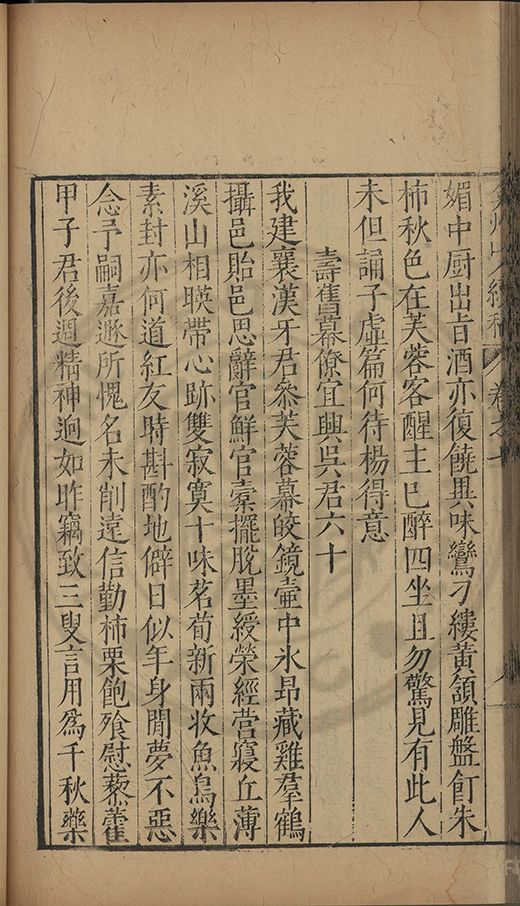 媚中厨出旨酒亦復饒異味鸞刀縷黄頷雕盤飣朱
柿秋色在芙蓉客醒主已醉四坐且勿驚見有此人
未但誦子虛篇何待楊得意
壽舊幕僚宜興吳君六十
我建襄漢牙君叅芙蓉幕皎鏡壷中氷昂藏雞羣鶴
攝邑貽邑思辭官鮮官橐擺脫墨綬榮經營寢丘薄
溪山相暎帶心跡雙寂寞十味茗荀新兩收魚鳥樂
素封亦何道紅友時斟酌地僻日似年身閒夢不惡
念予嗣嘉遯所愧名未削遠信勤柿栗飽飱慰藜藿
甲子君後週精神逈如昨竊致三叟言用爲千秋藥